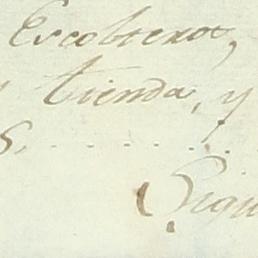 Escobreros,
tienda, y
s. . . . . . . .
Sigu